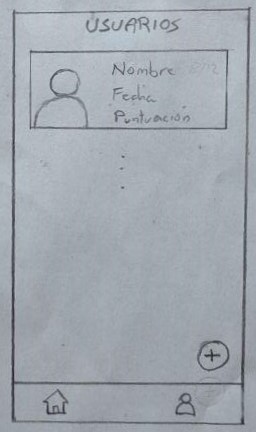 USUARIOS
Nombre
Fecha
Puntuación